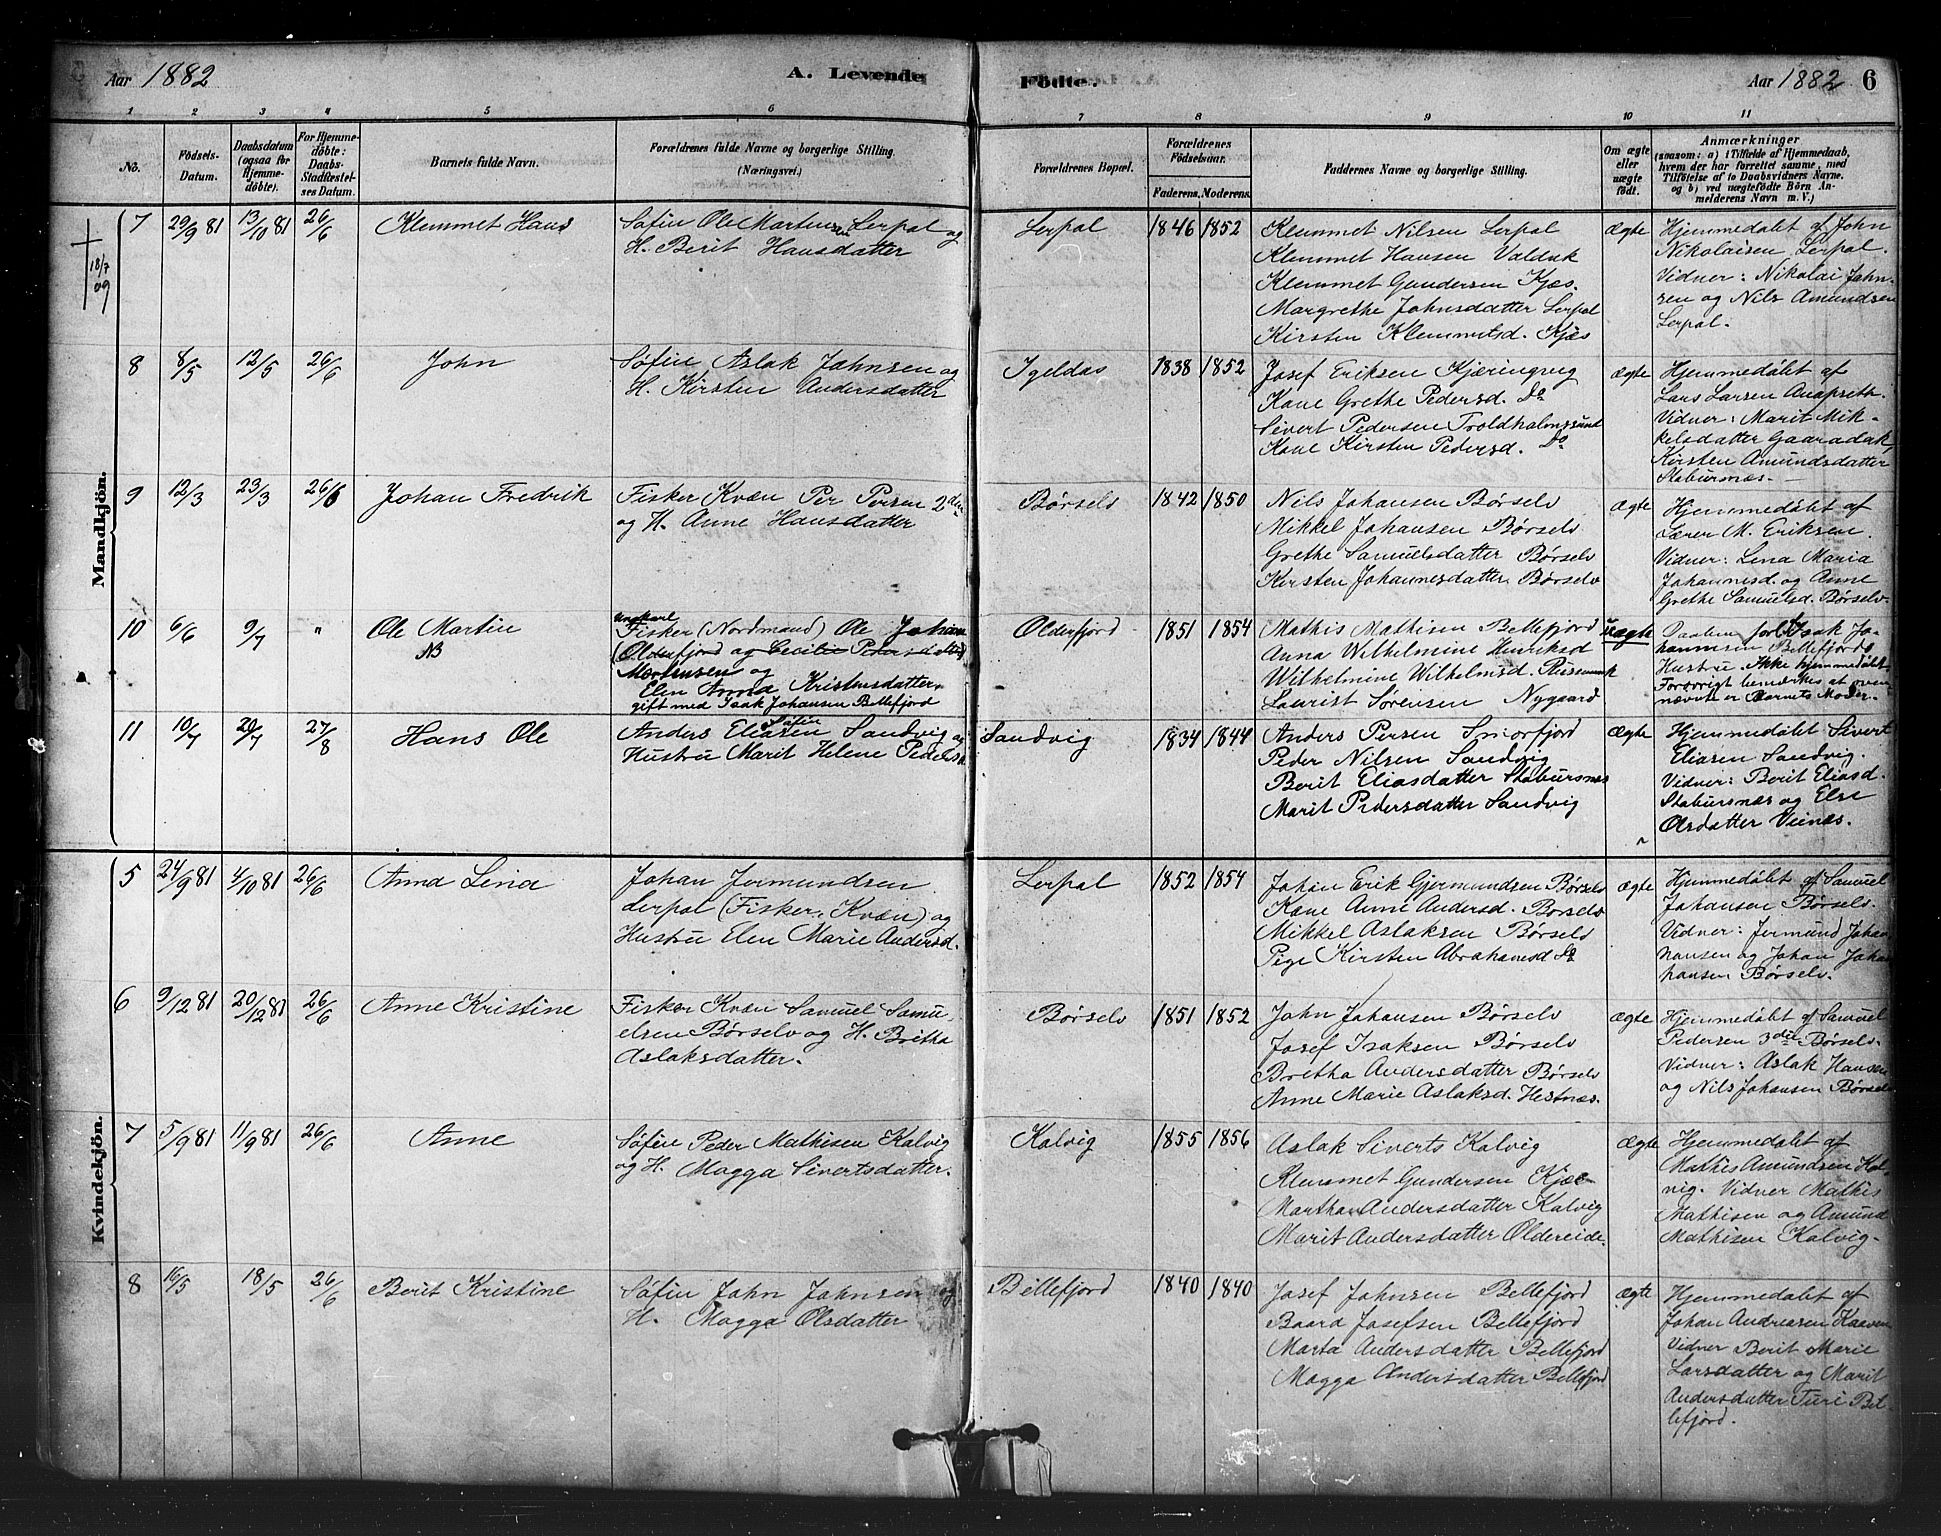 Aar 1882
A. Levende
Födte.
Aar 1882 6
1 2 3 4 5 6 7 8 9 10 11
No.
Födsels-
Datum.
Daabsdatum
(ogsaa for
Hjemme-
døbte).
For Hjemme-
döbte:
Daabs-
Stadfæstel-
ses Datum.
Barnets fulde Navn.
Forældrenes fulde Navne og borgerlige Stilling.
(Næringsvei.)
Forældrenes Bopæl.
Forældrenes
Födselsaar.
Faderens. Moderens.
Faddernes Navne og borgerlige Stilling.
Om ægte
eller
uægte
födt.
Anmærkninger
(saasom: a) i Tilfælde af Hjemmedaab,
hvem der har forrettet samme, med
Tilföielse af to Daabsvidners Navne,
og b) ved uægtefödte Börn An-
melderens Navn m. V.)
Mandkjön.
18/7
09
7 29/9 81 13/10 81 26/6 Klemmet Hans
Søfin Ole Martensen Lerpol og
H. Berit Hansdatter
Lerpol 1846 1852
Klemmet Nilsen Lerpol
Klemmet Hansen Valduk
Klemmet Gundersen Kjæs.
Margrethe Johnsdatter Lerpol
Kirsten Klemmetsd. Kjæs
ægte
Hjemmedøbt af John
Nikolaisen Lerpol.
Vidner: Nikolai John-
sen og Nils Amundsen
Lerpol.
8 8/5 12/5 26/6 John
Søfin Aslak Johnsen og
H. Kirsten Andersdatter
Igeldas 1838 1852
Josef Eriksen Kjæringvig
Kone Grethe Pedersd. Do
Sivert Pedersen Troldholmsund
Kone Kirsten Pedersd. Do
ægte
Hjemmedøbt af
Lars Larsen
Vidner: Marit Mik-
kelsdatter Gaaradak,
Kirsten Amundsdatter
Stabursnæs.
9 12/3 23/3 26/6 Johan Fredrik
Fisker Kvæn Per Persen 2den
og H. Anne Hansdatter
Børselv 1842 1850
Nils Johansen Børselv
Mikkel Johansen Børselv
Grethe Samuelsdatter Børselv
Kirsten Johannesdatter Børselv
ægte
Hjemmedøbt af
Lærer M. Eriksen.
Vidner: Lina Maria
Johannesd. og Anne
Grethe Samuelsd. Børselv.
10 6/6 9/7 " Ole Martin
NB
Ungkarl
Fisker (Nordmand) Ole Johan
(Olderfjord og Cecilie Pedersdatter)
Mortensen og
Elen Anna Kristensdatter
gift med Isak Johansen Billefjord
Olderfjord 1851 1854
Mathis Mathisen Billefjord
Anna Wilhelmine Henriksd
Wilhelmine Wilhelmsd. Russemark
Laurist Sørensen Nygaard
uægte
Daaben forl. Isak Jo-
hannesen Billefjords
Hustru. Ikke hjemmedøbt
Forøvrigt bemærkes at oven-
nævnte er Barnets Moder.
11 10/7 20/7 27/8 Hans Ole
Søfin
Anders Eliasen Sandvig og
Hustru Marit Helene Pedersd.
Sandvig 1834 1844
Anders Persen Smorfjord
Peder Nilsen Sandvig
Berit Eliasdatter Stabursnæs
Marit Pedersdatter Sandvig
ægte
Hjemmedøbt Sivert
Eliasen Sandvig.
Vidner: Berit Eliasd.
Stabursnæs og Else
Olsdatter Veinæs.
Kvindekjön.
5 24/9 81 4/10 81 26/6 Anna Lina
Johan Jermundsen
Lerpol (Fisker, Kvæn) og
Hustru Elen Marie Andersd.
Lerpol 1852 1854
Johan Erik Gjermundsen Børselv
Kone Anne Andersd. Børselv
Mikkel Aslaksen Børselv
Pige Kirsten Abrahamsd Do
ægte
Hjemmedøbt af Samuel
Johansen Børselv.
Vidner: Jermund Johan
hansen og Johan Johan
hansen Børselv.
6 9/12 81 20/12 81 26/6 Anne Kristine
Fisker Kvæn Samuel Samu-
elsen Børselv og H. Britha
Aslaksdatter.
Børselv 1851 1852
John Johansen Børselv
Josef Isaksen Børselv
Bretha Andersdatter Børselv
Anne Marie Aslaksd. Hestnæs.
ægte
Hjemmedøbt af Samuel
Pedersen 3die Børselv.
Vidner: Aslak Hansen
og Nils Johansen Børselv
7 5/9 81 11/9 81 26/6 Anne
Søfin Peder Mathisen Kalvig
og H. Magga Sivertsdatter.
Kalvig 1855 1856
Aslak Siverts Kalvig
Klemmet Gundersen Kjæs
Martha Andersdatter Kalvig
Marit Andersdatter Oldereide.
ægte
Hjemmedøbt af
Mathis Amundsen Kal-
vig. Vidner Mathis
Mathisen og Amund
Mathisen Kalvig.
8 16/5 18/5 26/6 Berit Kristine
Søfin John Johnsen og
H. Magga Olsdatter
Billefjord 1840 1840
Josef Johnsen Billefjord
Baard Josefsen Billefjord
Marta Andersdatter Billefjord
Magga Andersdatter Billefjord
ægte
Hjemmedøbt af
Johan Andreasen Kaaven
Vidner Berit Marie
Larsdatter og Marit
Andersdatter Turi Bil-
lefjord.